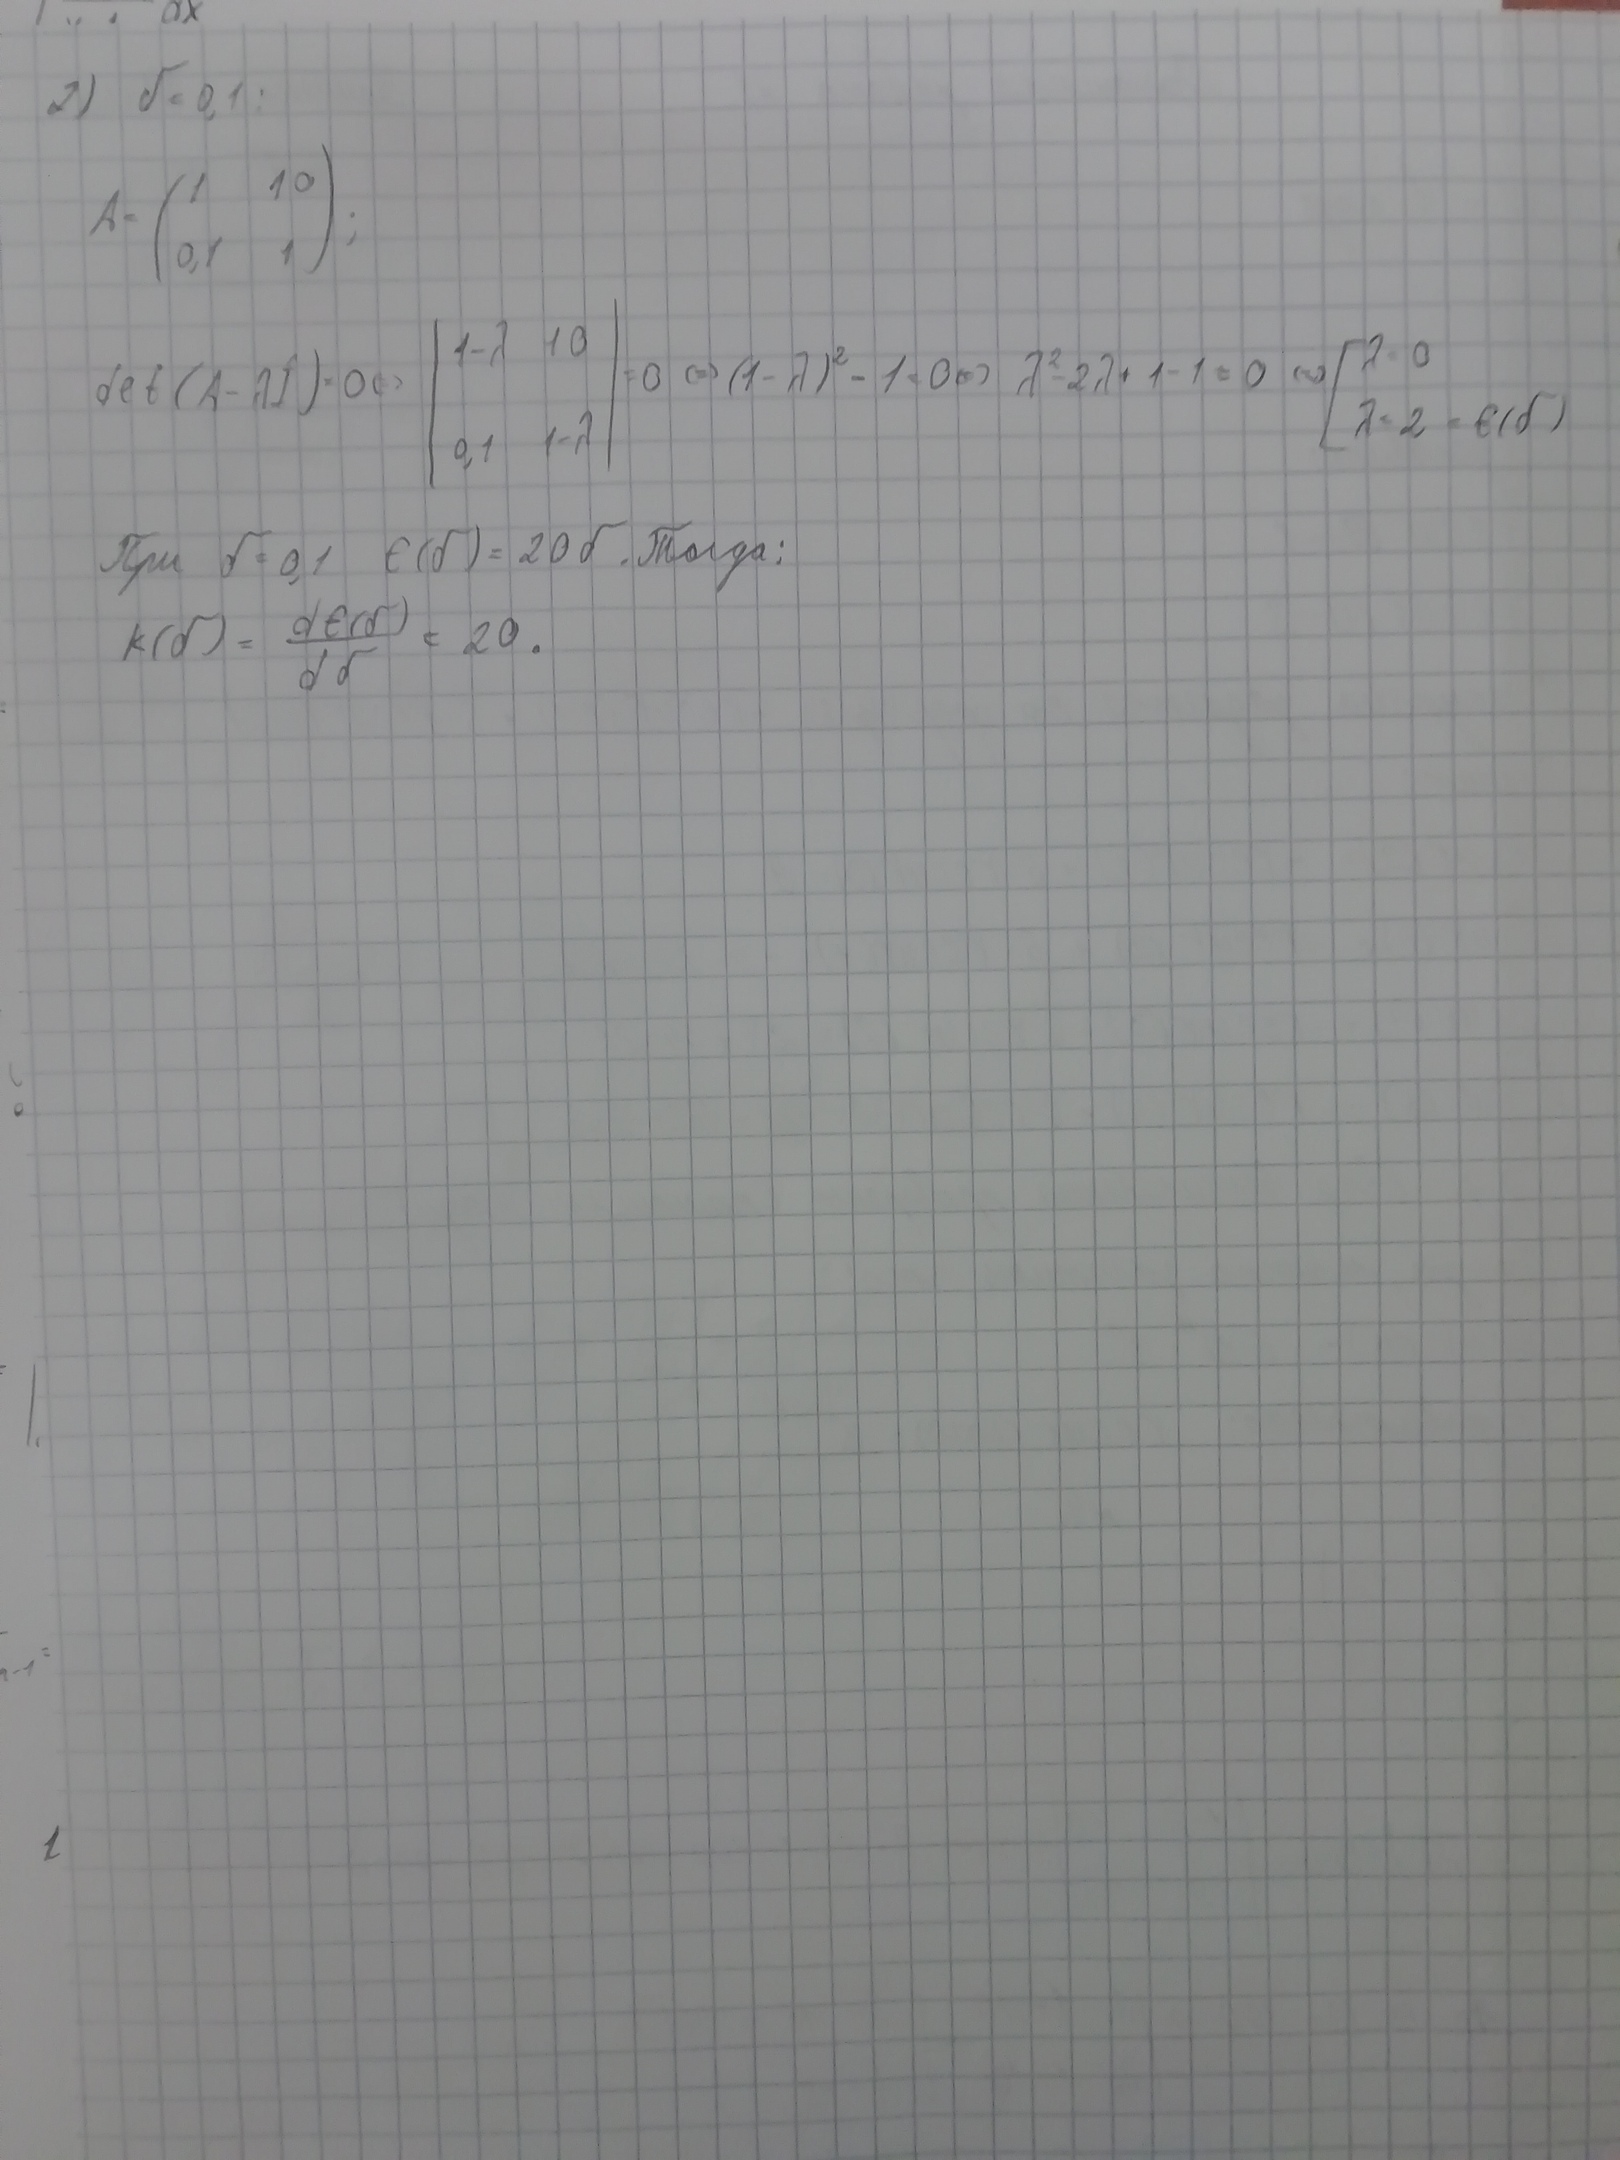 dx
2) δ = 0,1 :
A = ( 1 10
0,1 1 ) ;
det (A - λI) = 0 <=> | 1-λ 10
0,1 1-λ | = 0 <=> (1-λ)² - 1 = 0 <=> λ² - 2λ + 1 - 1 = 0 <=> [ λ = 0
λ = 2 = ϵ(δ)
При δ = 0,1 ϵ(δ) = 20δ. Тогда:
k(δ) = dϵ(δ)/dδ = 20.
n-1 =
1